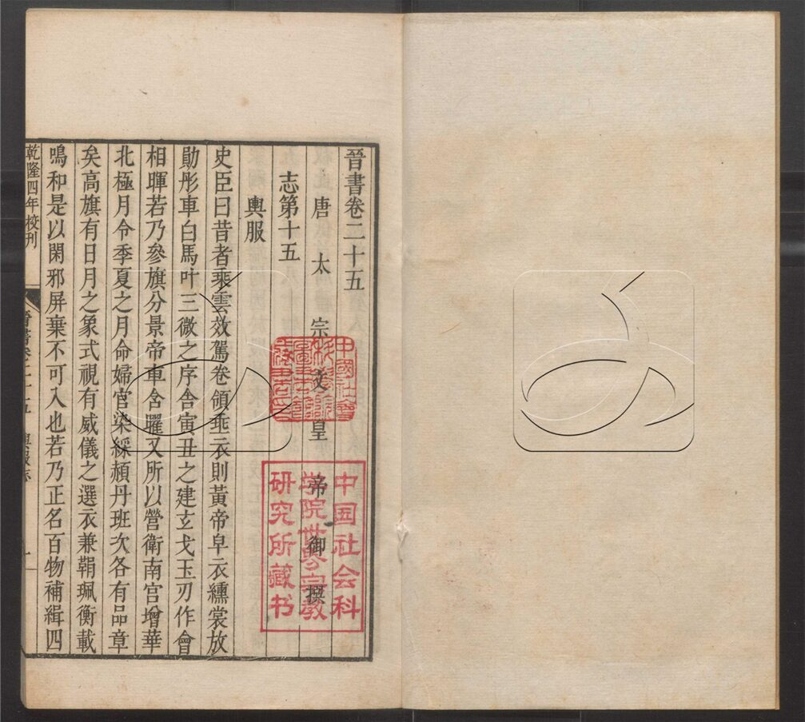 晉書卷二十五
唐太宗文皇帝御撰
志第十五
輿服
史臣曰昔者乘雲效駕卷領垂衣則黃帝皁衣纁裳放
勛彤車白馬叶三微之序舎寅丑之建玄戈玉刃作會
相暉若乃參旗分景帝車含曜又所以營衛南宫增華
北極月令季夏之月命婦官染綵赬丹班次各有品章
矣高旗有日月之象式視有威儀之選衣兼鞙珮衡載
鳴和是以閑邪屏棄不可入也若乃正名百物補緝四
乾隆四年校刊
晉書卷二十五 輿服志 一
中国社会科
学院世界宗教
研究所藏书